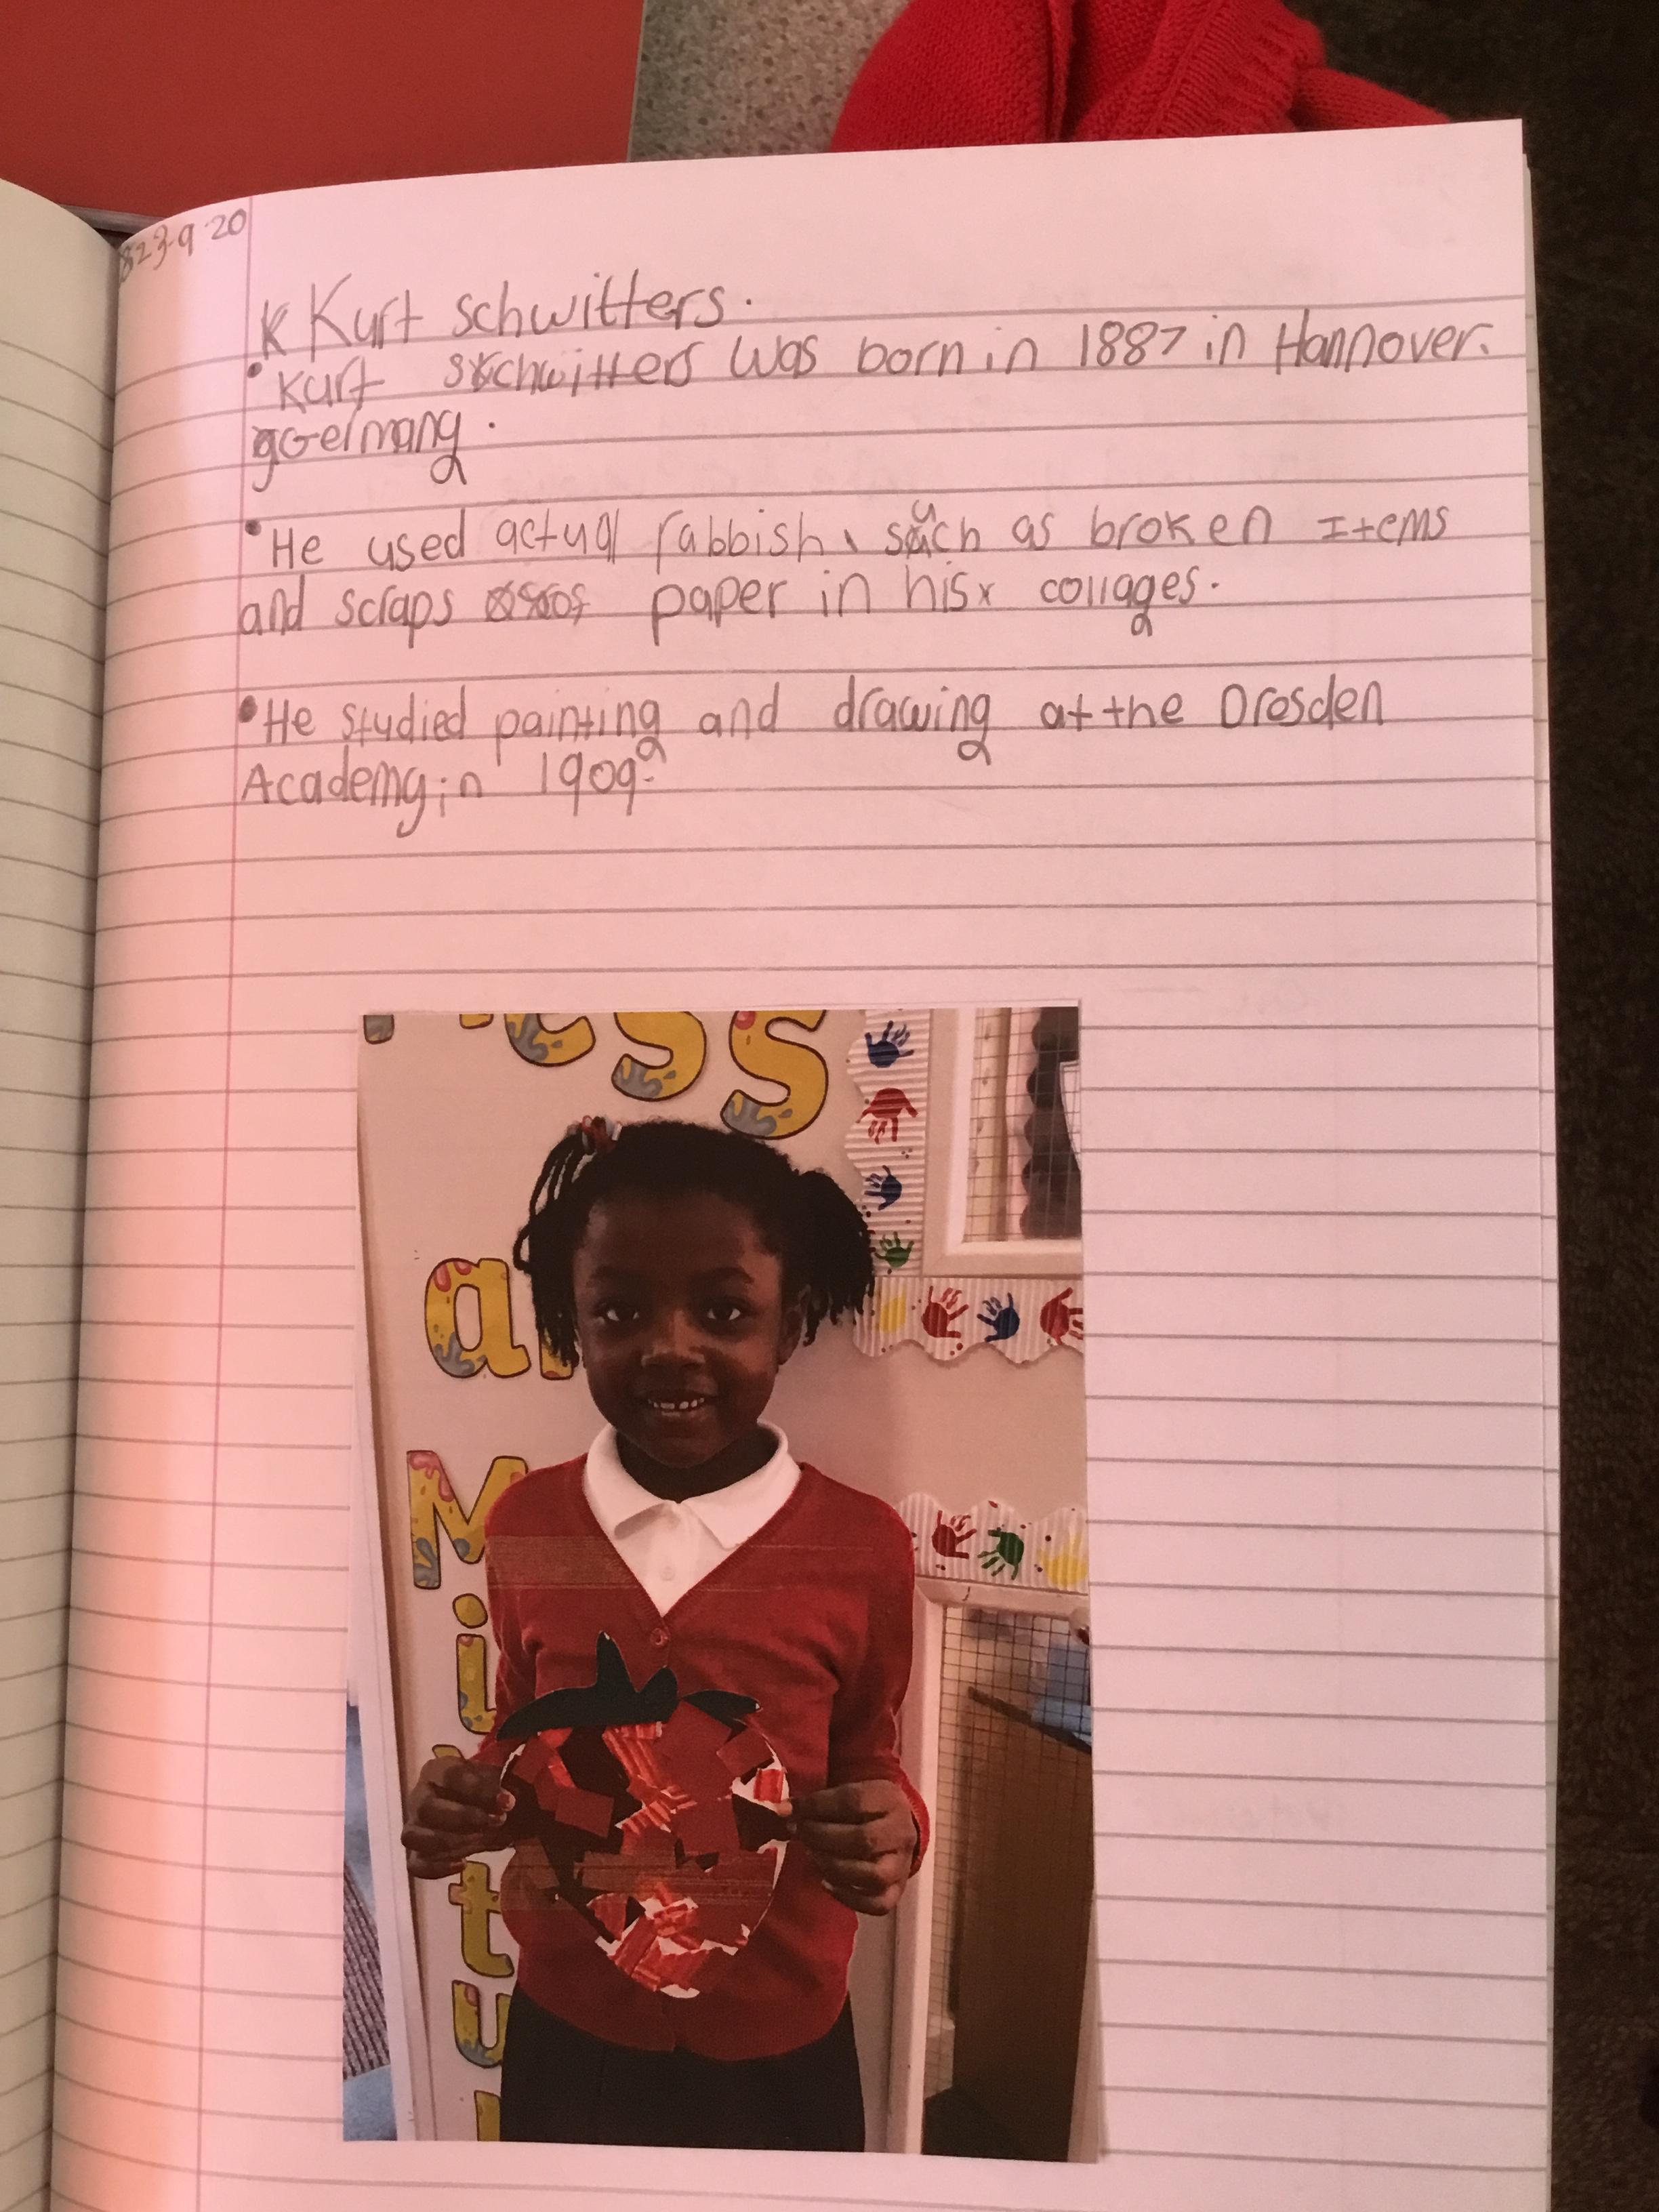 23.9.20
K Kurt schwitters.
• Kurt schwitters was born in 1887 in Hannover.
Germany.
• He used actual rabbish, such as broken Items
and scraps of paper in his collages.
• He studied painting and drawing at the Dresden
Academy in 1909.
ess
a
M
i
t
u